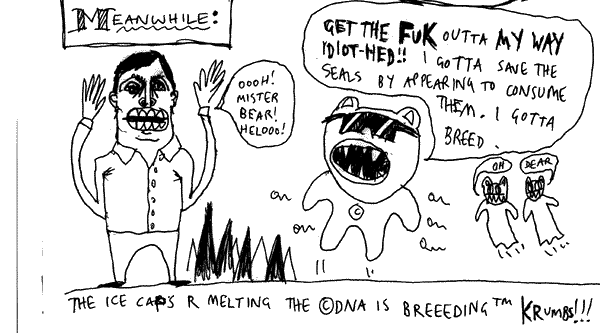 MEANWHILE:
OOOH!
MISTER
BEAR!
HELOOO!
GET THE FUK OUTTA MY WAY
IDIOT-HED!! I GOTTA SAVE THE
SEALS BY APPEARING TO CONSUME
THEM. I GOTTA
BREED.
OH
DEAR
©
THE ICE CAPS R MELTING THE ©DNA IS BREEEDING™ KRUMBS!!!